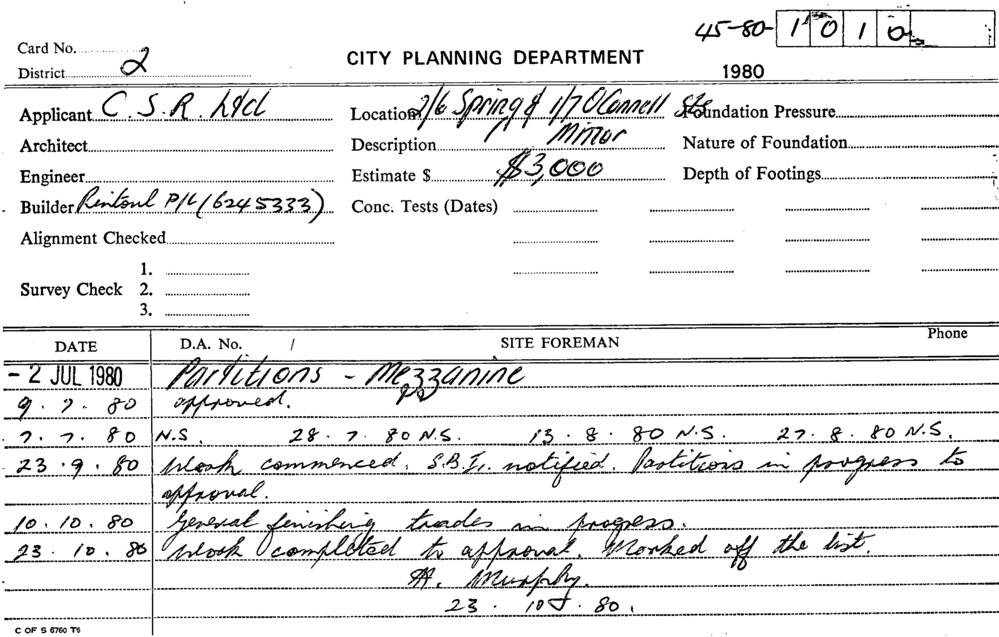 45-80-1010
Card No.
District 2
CITY PLANNING DEPARTMENT
1980
Applicant C. S. R. Ltd
Location 2/6 Spring & 1/7 O'Connell Sts
Foundation Pressure
Architect
Description Minor
Nature of Foundation
Engineer
Estimate $ $3,000
Depth of Footings
Builder Rintoul P/L (6245333)
Conc. Tests (Dates)
Alignment Checked
1.
Survey Check 2.
3.
DATE D.A. No. / SITE FOREMAN Phone
- 2 JUL 1980 Partitions - Mezzanine
9. 7. 80 approved.
7. 7. 80 N.S. 28. 7. 80 N.S. 13. 8. 80 N.S. 27. 8. 80 N.S.
23. 9. 80 Work commenced. S.B.I. notified. Partitions in progress to
approval.
10. 10. 80 General finishing trades in progress.
23. 10. 80 Work completed to approval. Marked off the list.
A. Murphy.
23. 10. 80.
C OF S 6760 T6